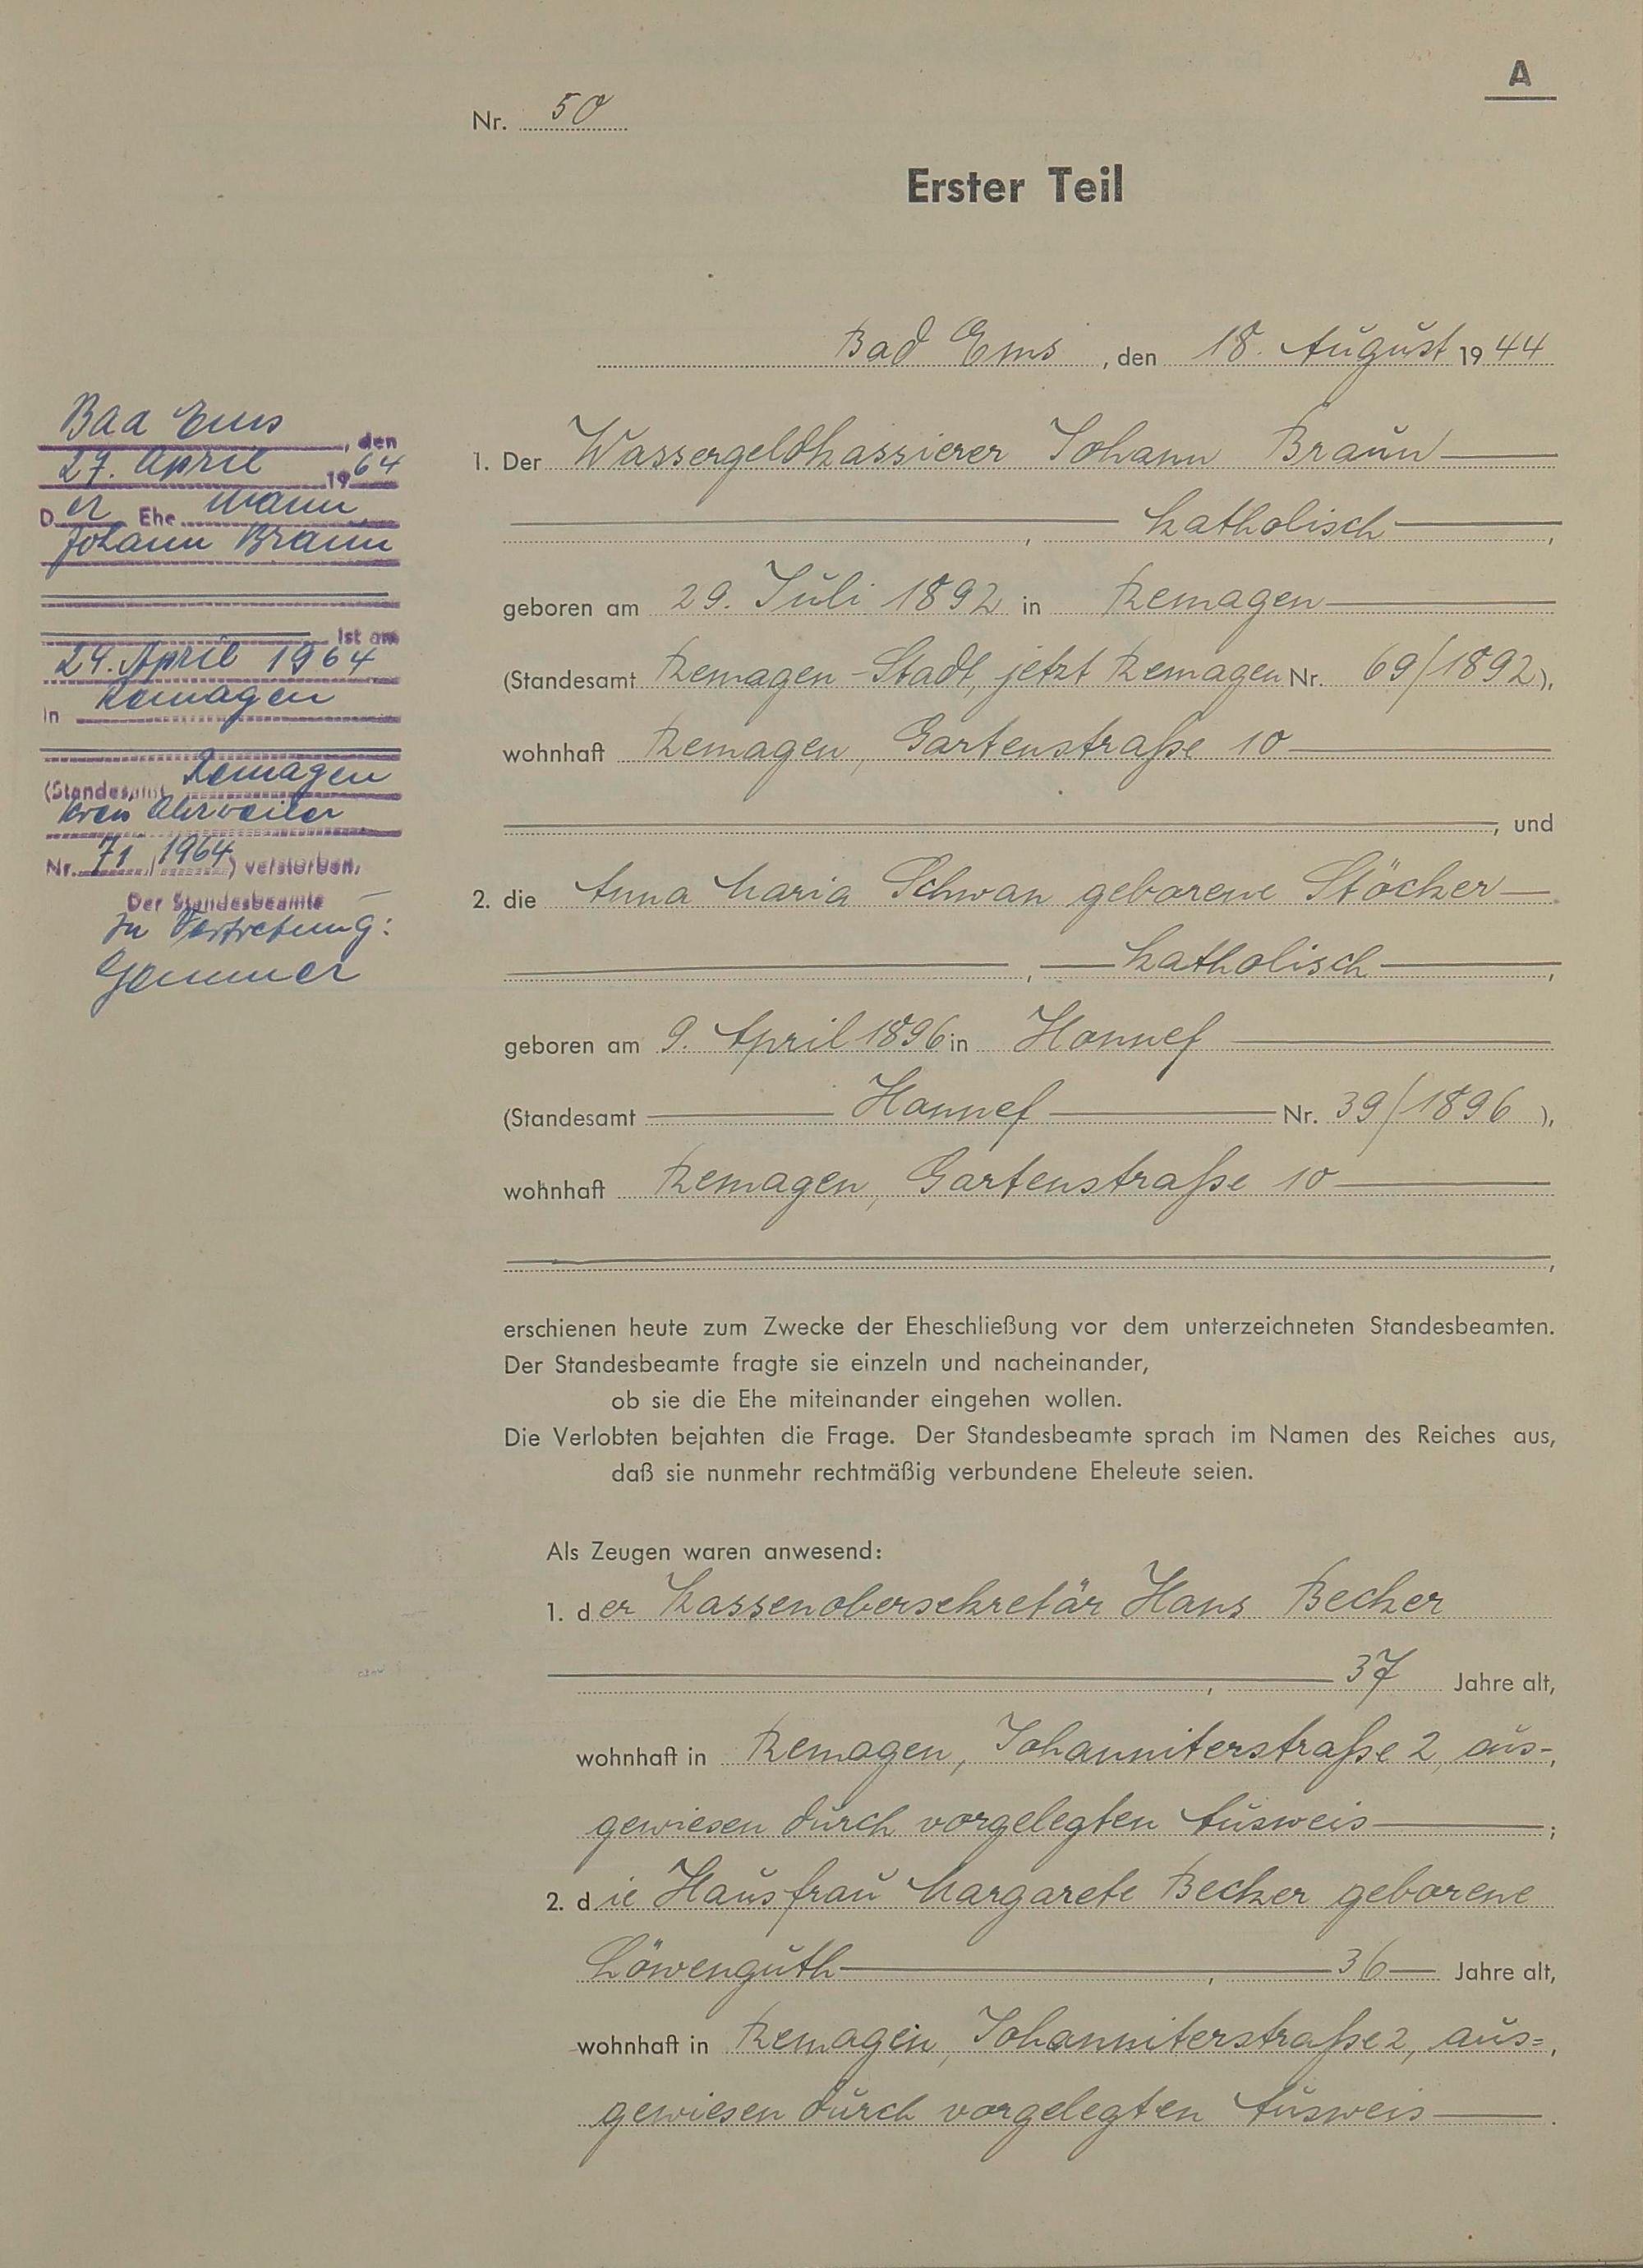 A
Nr. 50
Erster Teil
Bad Ems, den 18. August 1944
1. Der Wassergeldkassierer Johann Braun
, katholisch,
geboren am 29. Juli 1892 in Remagen
(Standesamt Remagen-Stadt, jetzt Remagen Nr. 69/1892),
wohnhaft Remagen, Gartenstraße 10
, und
2. die Anna Maria Schwan geborene Stöcker
, katholisch,
geboren am 9. April 1896 in Honnef
(Standesamt Honnef Nr. 39/1896),
wohnhaft Remagen, Gartenstraße 10
,
erschienen heute zum Zwecke der Eheschließung vor dem unterzeichneten Standesbeamten.
Der Standesbeamte fragte sie einzeln und nacheinander,
ob sie die Ehe miteinander eingehen wollen.
Die Verlobten bejahten die Frage. Der Standesbeamte sprach im Namen des Reiches aus,
daß sie nunmehr rechtmäßig verbundene Eheleute seien.
Als Zeugen waren anwesend:
1. der Kassenobersekretär Hans Becker
, 37 Jahre alt,
wohnhaft in Remagen, Johanniterstraße 2, aus-,
gewiesen durch vorgelegten Ausweis;
2. die Hausfrau Margarete Becker geborene
Löwenguth, 36 Jahre alt,
wohnhaft in Remagen, Johanniterstraße 2, aus=,
gewiesen durch vorgelegten Ausweis.
Bad Ems, den
27. April 1964
Der Ehemann
Johann Braun
ist am
24. April 1964
in Remagen
(Standesamt Remagen
Kreis Ahrweiler
Nr. 71/1964) verstorben.
Der Standesbeamte
In Vertretung: